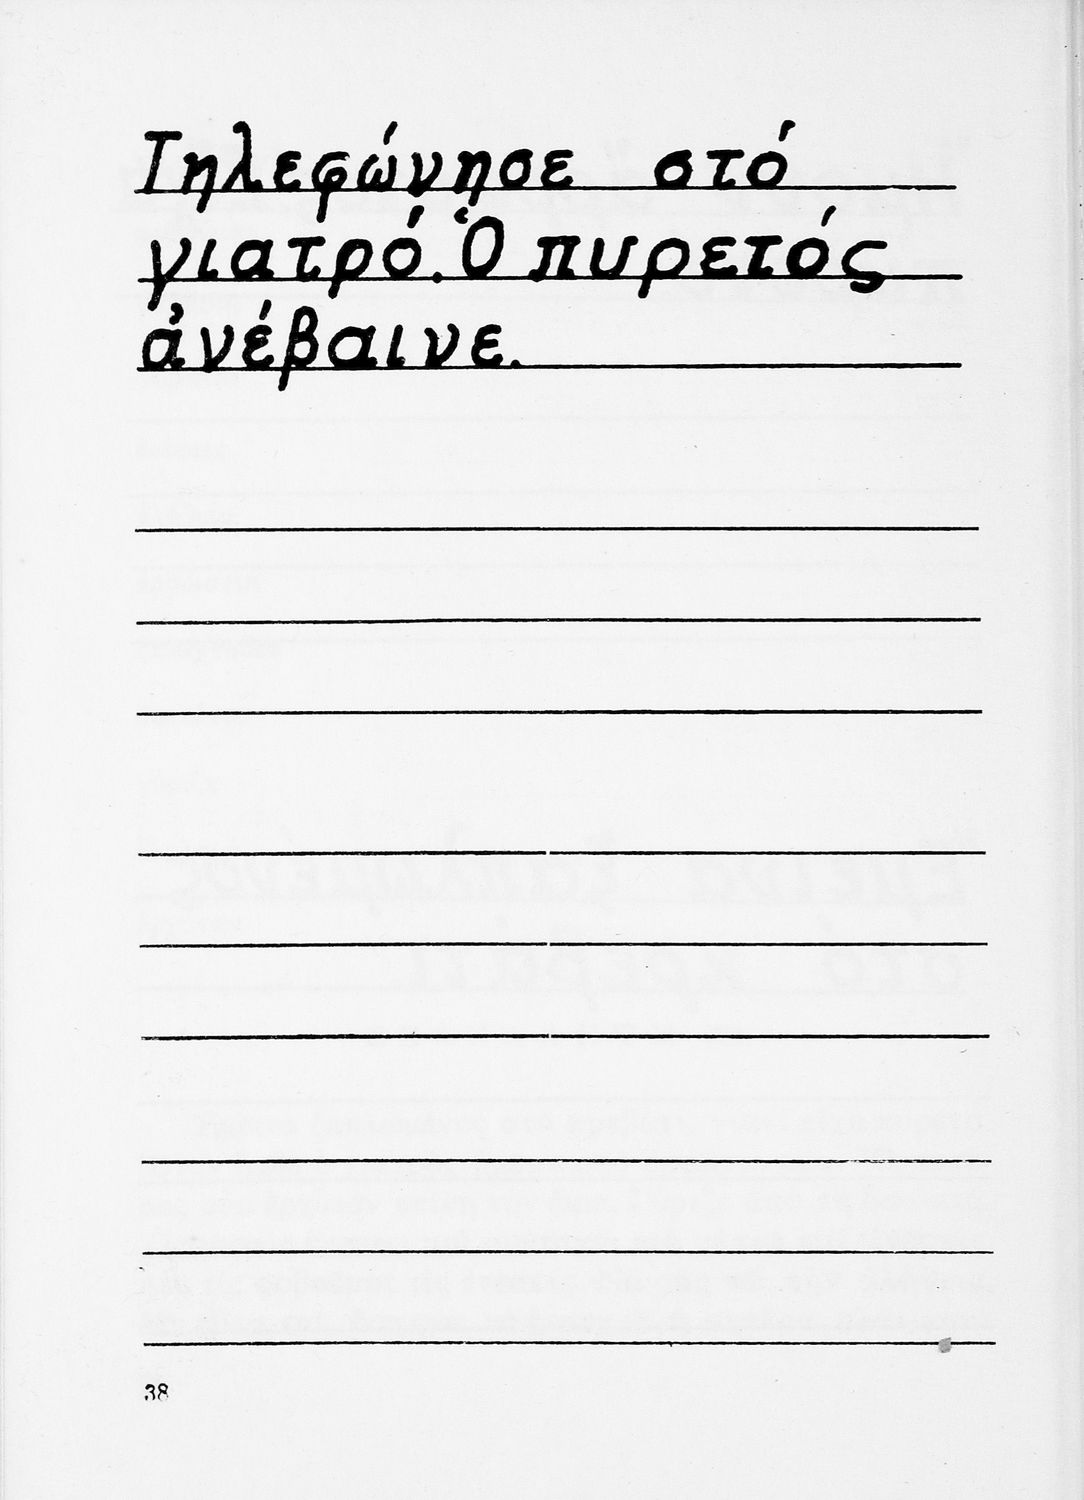 Τηλεφώνησε στό
γιατρό. Ὁ πυρετός
ἀνέβαινε.
38